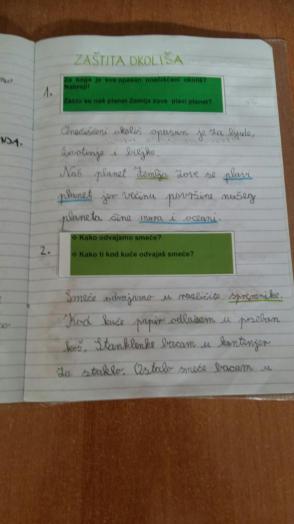 ZAŠTITA OKOLIŠA
1.
Za koga je sve opasan onečišćeni okoliš?
Nabroji!
Zašto se naš planet Zemlja zove plavi planet?
Onečišćeni okoliš opasan je za ljude,
životinje i biljke.
Naš planet Zemlja zove se plavi
planet jer većinu površine našeg
planeta čine mora i oceani.
2.
Kako odvajamo smeće?
Kako ti kod kuće odvajaš smeće?
Smeće odvajamo u različite spremnike.
Kod kuće papir odlažem u poseban
koš. Staklenke bacam u kontejner
za staklo. Ostalo smeće bacam u